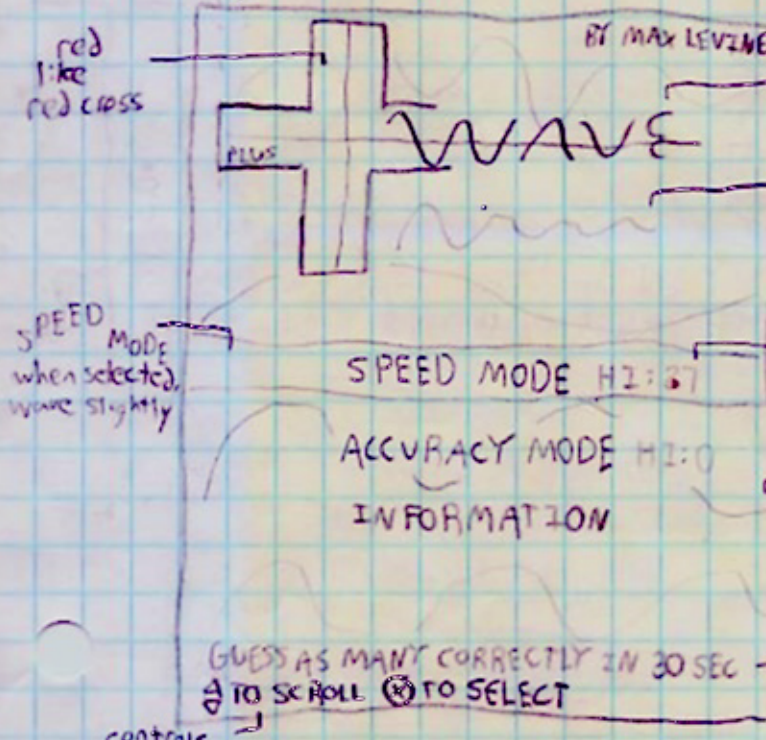 red
like
red cross
BY MAX LEVINE
PLUS
WAVE
SPEED
MODE
when selected,
wave slightly
SPEED MODE HI:37
ACCURACY MODE HI:0
INFORMATION
GUESS AS MANY CORRECTLY IN 30 SEC
TO SCROLL ⓧ TO SELECT
controls